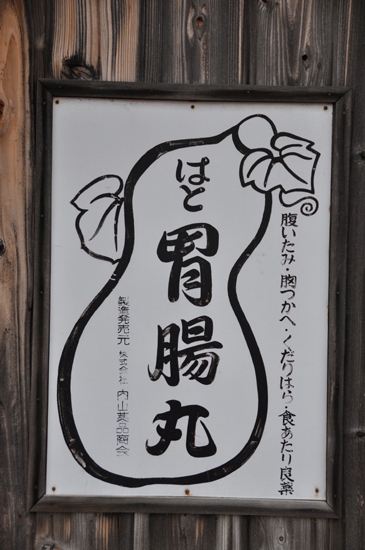 腹いたみ・胸つかへ・くだりはら・食あたり良薬
はと
胃腸丸
製造発売元 株式会社 内山薬品商会